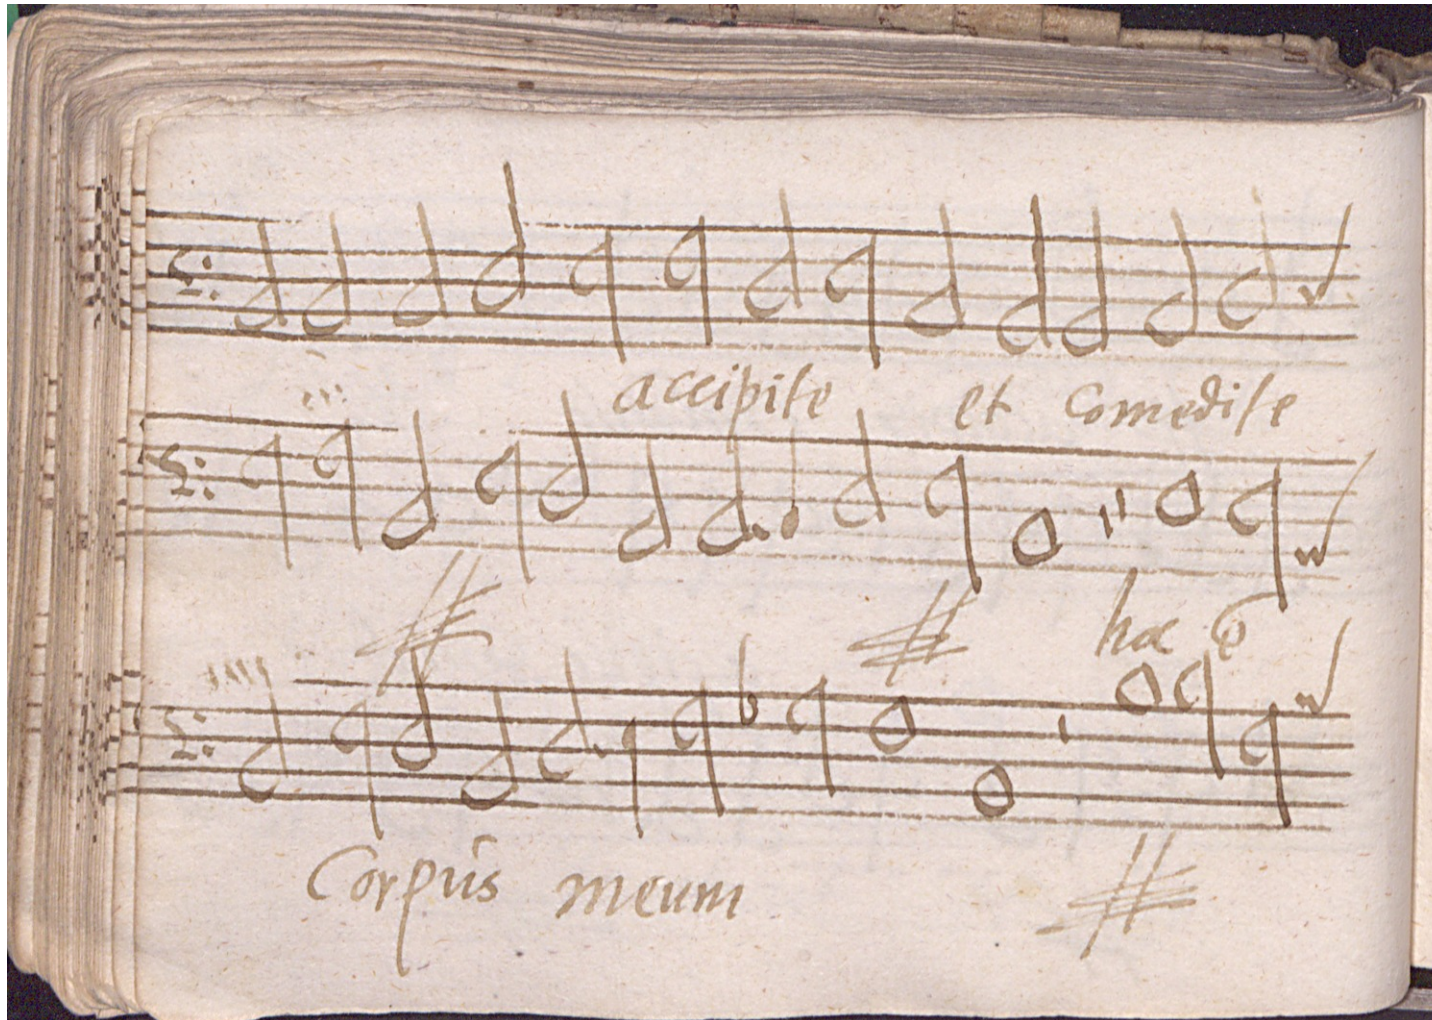 accipite et Comedite
hoc ē
Corpus meum